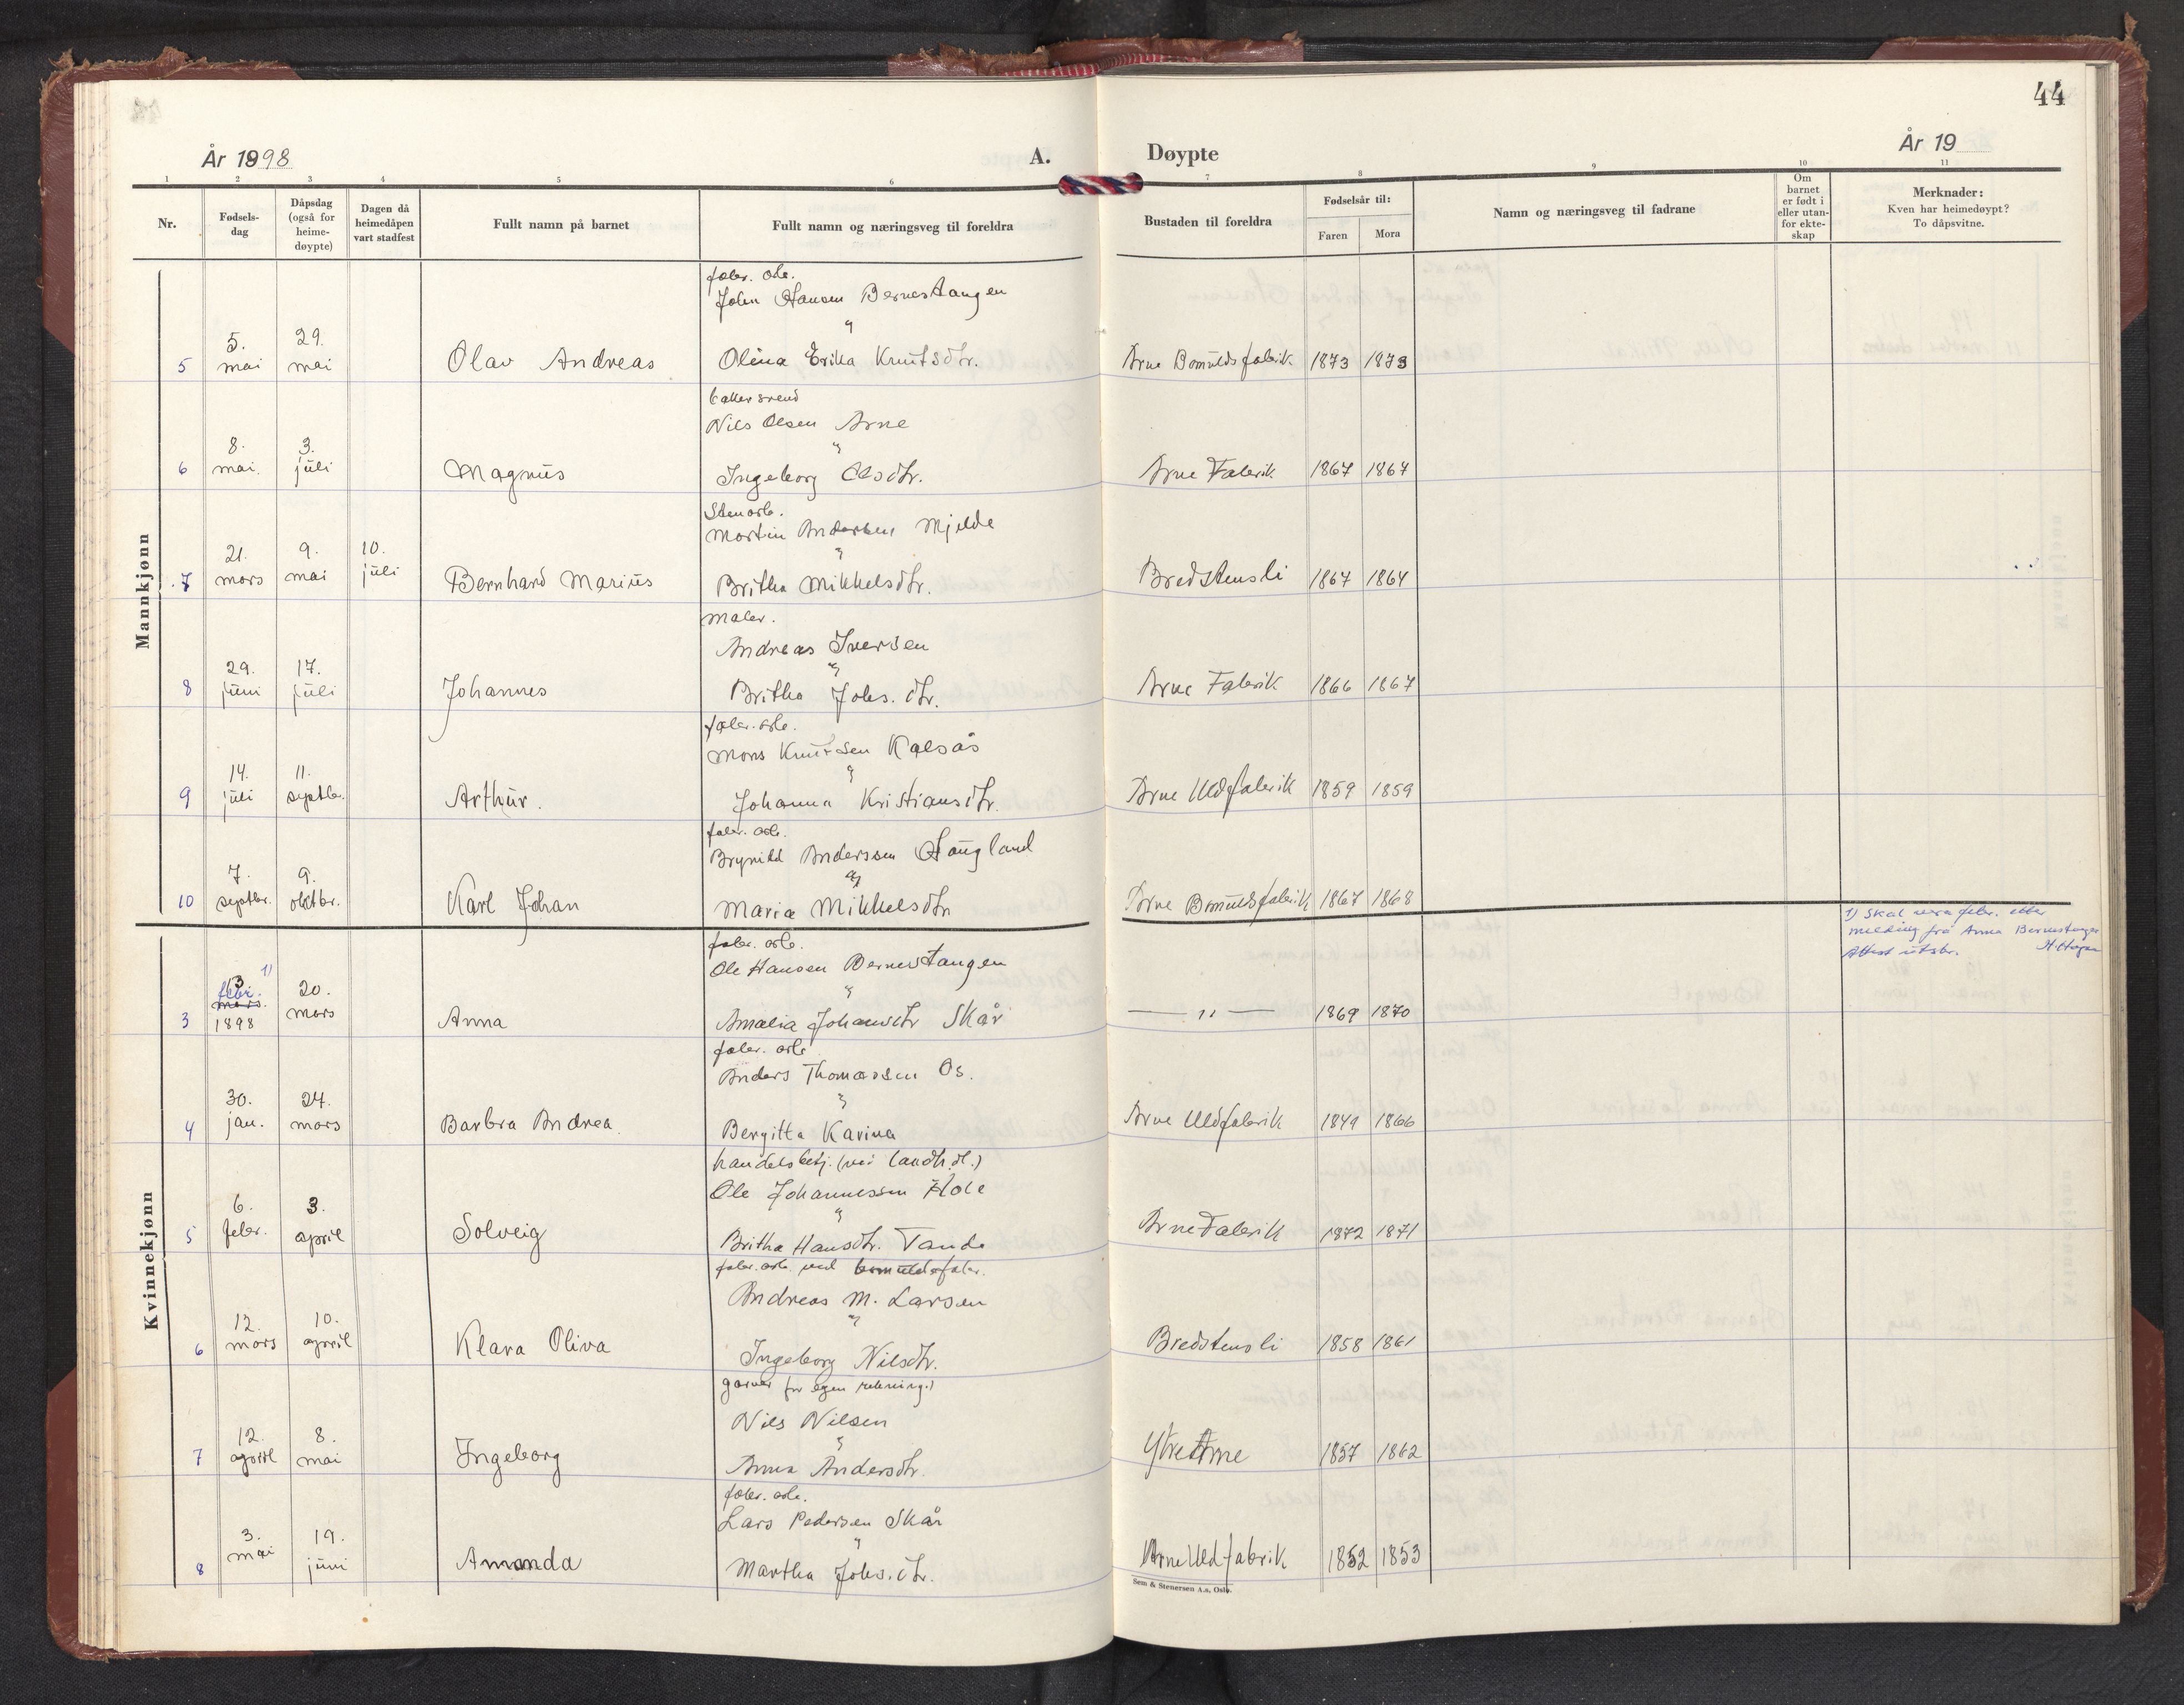 44
År 1898
A.
Døypte
År 19
1 2 3 4 5 6 7 8 9 10 11
Nr.
Fødsels-
dag
Dåpsdag
(også for
heime-
døypte)
Dagen då
heimedåpen
vart stadfest
Fullt namn på barnet
Fullt namn og næringsveg til foreldra
Bustaden til foreldra
Fødselsår til:
Faren
Mora
Namn og næringsveg til fadrane
Om
barnet
er født i
eller utan-
for ekte-
skap
Merknader:
Kven har heimedøypt?
To dåpsvitne.
Mannkjønn
fabr. arb.
John Hansen Bernestangen
"
5 5. mai 29. mai Olav Andreas Olina Erika Knutsdtr. Arne Bomuldsfabrik 1873 1873
baker svend
Nils Olsen Arne
"
6 8. mai. 3. juli Magnus Ingeborg Olsdtr. Arne Fabrik 1867 1867
Stenarb.
Martin Andersen Mjelde
"
7 21. mars 9. mai 10. juli Bernhard Marius Britha Mikkelsdtr. Bredstensli 1867 1864
maler.
Andreas Iversen
"
8 29. juni 17. juli Johannes Britha Johs. dtr. Arne Fabrik 1866 1867
fabr. arb.
Mons Knutsen Kalsås
"
9 14. juli 11. septbr. Arthur. Johanna Kristiansdtr. Arne Uldfabrik 1859 1859
fabr. arb.
Brynild Anderssen Haugland
"
10 7. septbr. 9. oktbr. Karl Johan Maria Mikkelsdtr Arne Bomuldsfabrik 1867 1868
Kvinnekjønn
1) Skal vera febr. etter
melding frå Anna Bernestangen
Attest utskr. H. Hagen
fabr. arb.
Ole Hansen Bernestangen
"
3 3 febr. 1) mars. 1898 20. mars Anna Amalia Johansdtr Skår — " — 1869 1870
fabr. arb
Anders Thomassen Os.
"
4 30. jan. 24. mars Barbra Andrea. Bergitta Karina Arne Uldfabrik 1849 1866
handelsbetj. (ved landh.dl.)
Ole Johannessen
"
5 6. febr. 3. april Solveig Britha Hansdtr. Tande Arne Fabrik 1872 1871
fabr. arb. ved bomuldsfabr.
Andreas M. Larsen
"
6 12. mars 10. april Klara Oliva Ingeborg Nilsdtr. Bredstensli 1858 1861
garver for egen rekning.)
Nils Nilsen
"
7 12. april 8. mai Ingeborg Anna Andersdtr. Ytre Arne 1857 1862
fabr. arb.
Lars Pedersen Skår
"
8 3. mai 19. juni Amanda Martha Johs. dtr. Arne Uldfabrik 1852 1853
Sem & Stenersen A.s, Oslo.